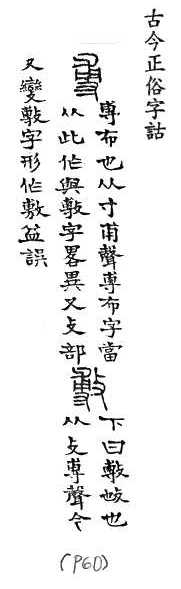 古今正俗字詁
尃
尃布也从寸甫聲尃布字當
从此作與𢾭字畧異又攴部
𢾭
下曰𢾭𢻱也
从攴尃聲今
又變𢾭字形作敷益誤
(P60)